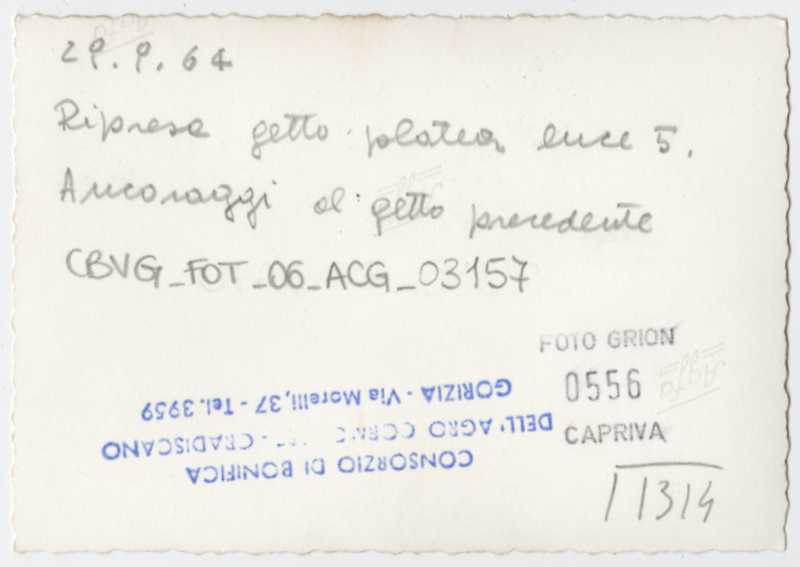 29.9.64
Ripresa getto platea luce 5.
Ancoraggi al getto precedente
CBVG_FOT_06_ACG_03157
FOTO GRION
0556
CAPRIVA
CONSORZIO DI BONIFICA
DELL'AGRO - GRADISCANO
GORIZIA - Via Morelli, 37 - Tel. 3959
Agfa
1314